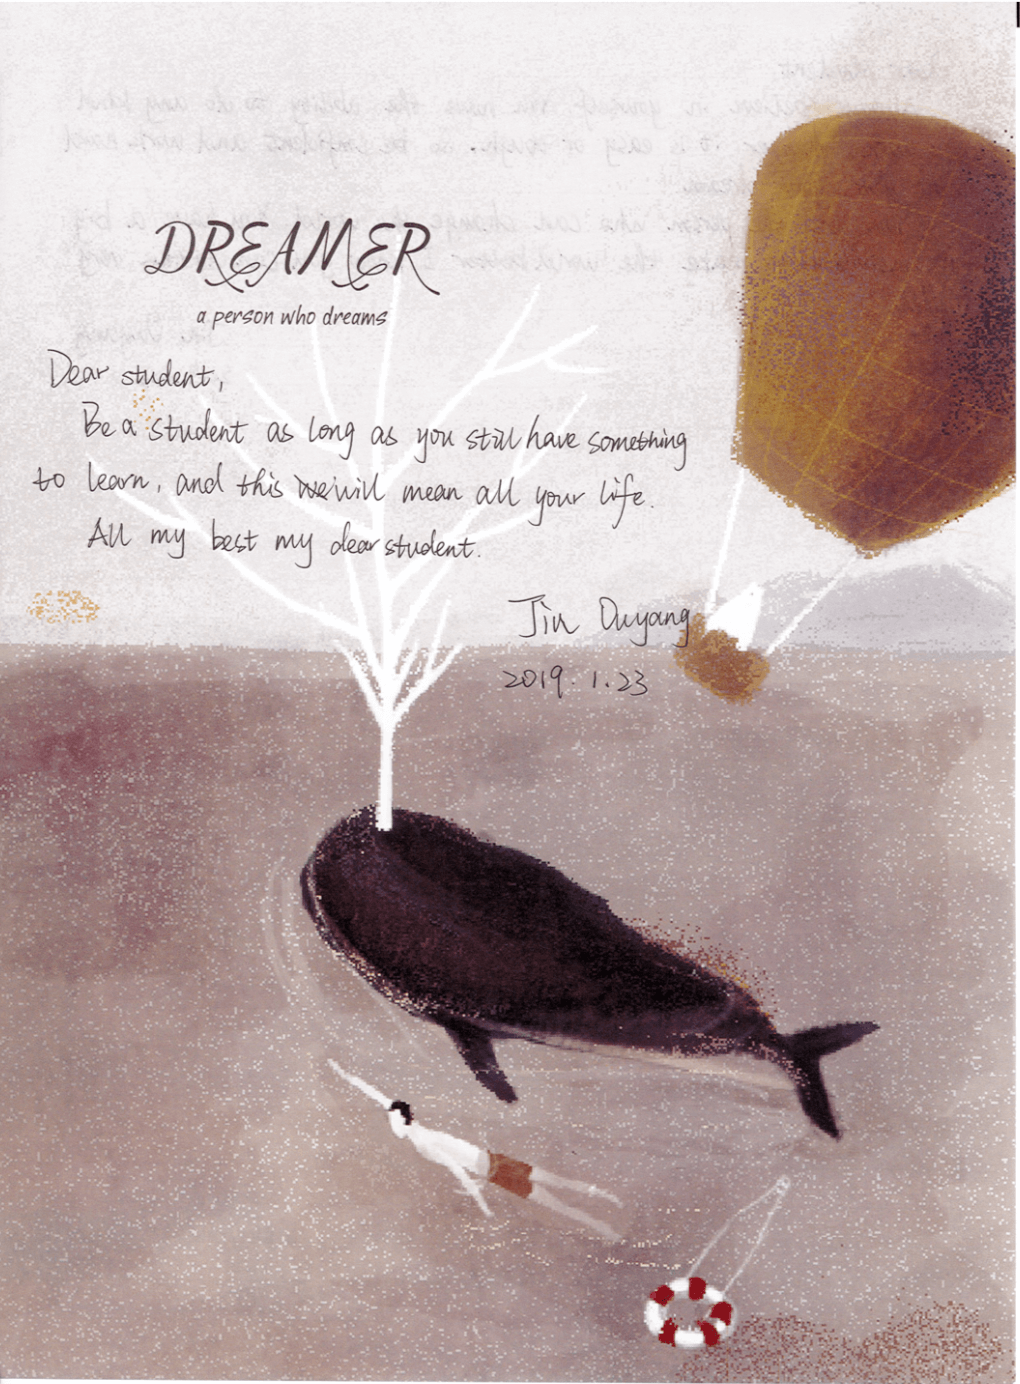 DREAMER
a person who dreams
Dear student,
Be a student as long as you still have something
to learn, and this will mean all your life.
All my best my dear student.
Jin Ouyang
2019.1.23